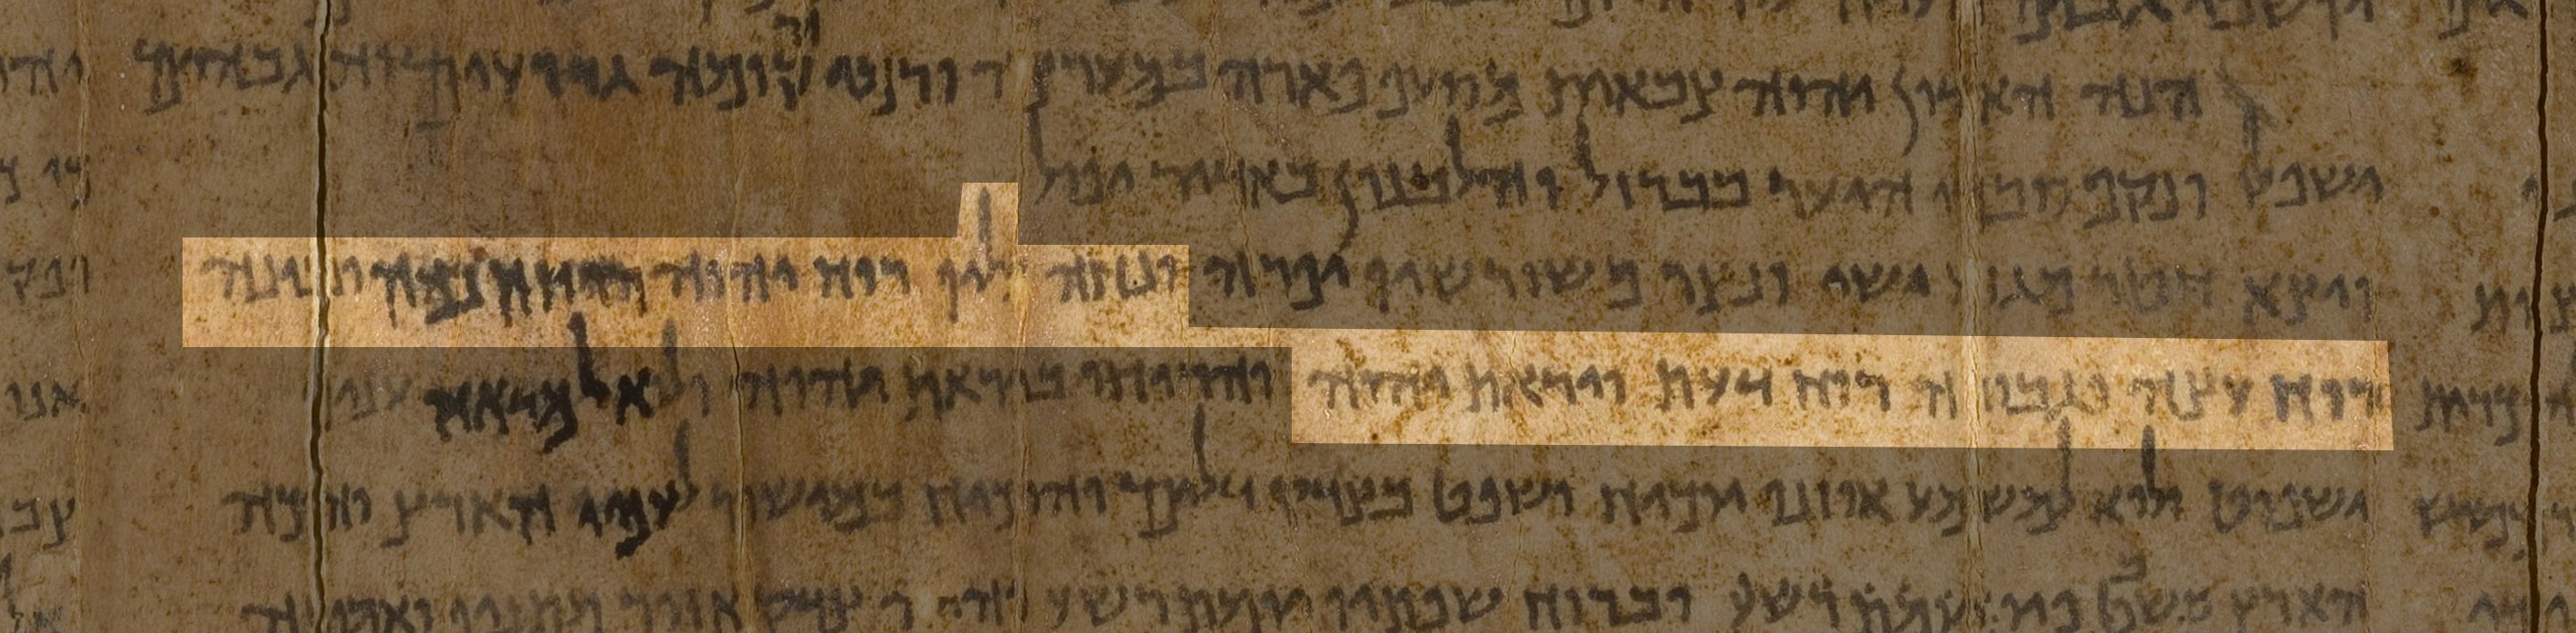 הנה האדון יהוה צבאות מסעף פארה במערצה ורמי הקומה גדועים והגבהים
ישפלו ונקף סבכי היער בברזל והלבנון באדיר יפול
ויצא חטר מגזע ישי ונצר משורשיו יפרה ונחה עליו רוח יהוה רוח חוכמה ובינה
רוח עצה וגבורה רוח דעת ויראת יהוה והריחו ביראת יהוה ולא למראה עיניו
ישפוט ולוא למשמע אוזניו יוכיח ושפט בצדק דלים והוכיח במישור לעניי הארץ והכה
הארץ בשבט פיו יומת רשע וברוח שפתיו יומת רשע והיה צדק אזור מתניו ואמונה